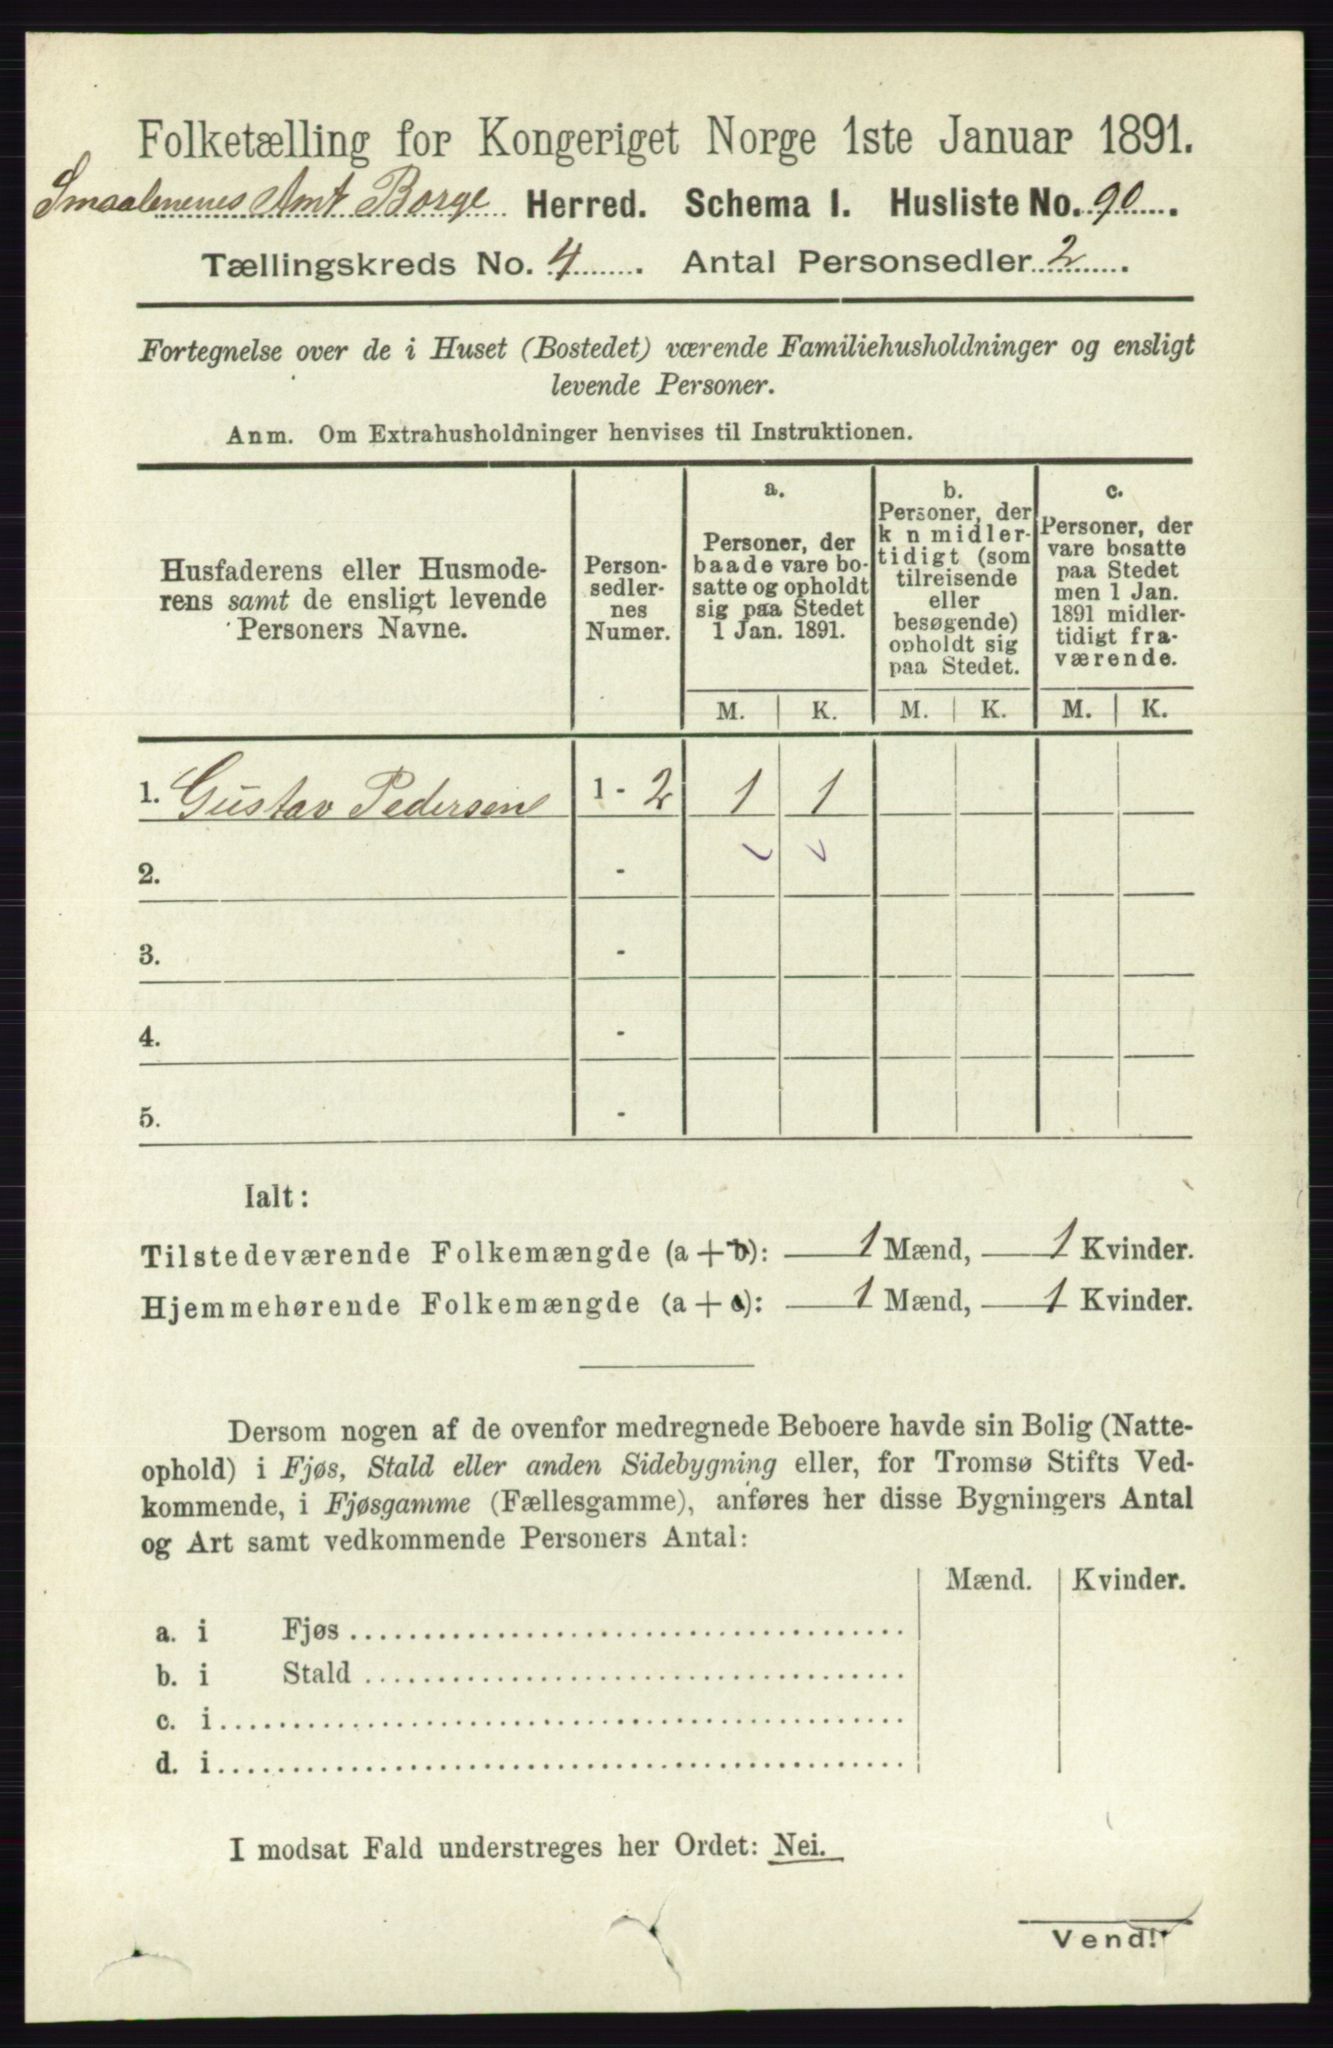 Folketælling for Kongeriget Norge 1ste Januar 1891.
Smaalenenes Amt Borge Herred. Schema I. Husliste No. 90.
Tællingskreds No. 4. Antal Personsedler 2.
Fortegnelse over de i Huset (Bostedet) værende Familiehusholdninger og ensligt
levende Personer.
Anm. Om Extrahusholdninger henvises til Instruktionen.
Husfaderens eller Husmode-
rens samt de ensligt levende
Personers Navne.
Person-
sedler-
nes
Numer.
a.
Personer, der
baade vare bo-
satte og opholdt
sig paa Stedet
1 Jan. 1891.
b.
Personer, der
k n midler-
tidigt (som
tilreisende
eller
besøgende)
opholdt sig
paa Stedet.
c.
Personer, der
vare bosatte
paa Stedet
men 1 Jan.
1891 midler-
tidigt fra-
værende.
M. K. M. K. M. K.
1. Gustav Pedersen 1 - 2 1 1
2. -
3. -
4. -
5. -
Ialt:
Tilstedeværende Folkemængde (a + b): 1 Mænd, 1 Kvinder.
Hjemmehørende Folkemængde (a + c): 1 Mænd, 1 Kvinder.
Dersom nogen af de ovenfor medregnede Beboere havde sin Bolig (Natte-
ophold) i Fjøs, Stald eller anden Sidebygning eller, for Tromsø Stifts Ved-
kommende, i Fjøsgamme (Fællesgamme), anføres her disse Bygningers Antal
og Art samt vedkommende Personers Antal:
Mænd. Kvinder.
a. i Fjøs
b. i Stald
c. i
d. i
I modsat Fald understreges her Ordet: Nei.
Vend!